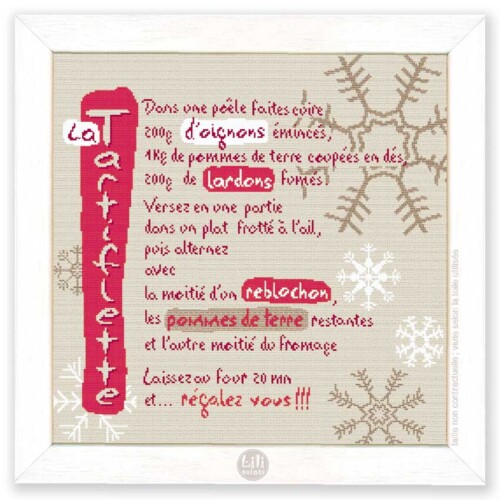 La
Tartiflette
Dans une poêle faites cuire
200g d'oignons émincés,
1Kg de pommes de terre coupées en dés,
200g de lardons fumés.
Versez en une partie
dans un plat frotté à l'ail,
puis alternez
avec
la moitié d'un reblochon,
les pommes de terre restantes
et l'autre moitié du fromage
Laissez au four 20 mn
et... régalez vous!!!
taille non contractuelle ; varie selon la toile utilisée
Lili
points